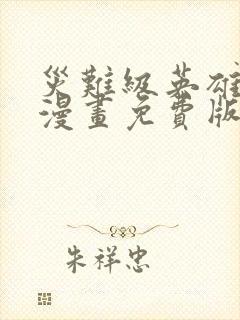 災難級英雄
漫畫免費版
朱祥忠